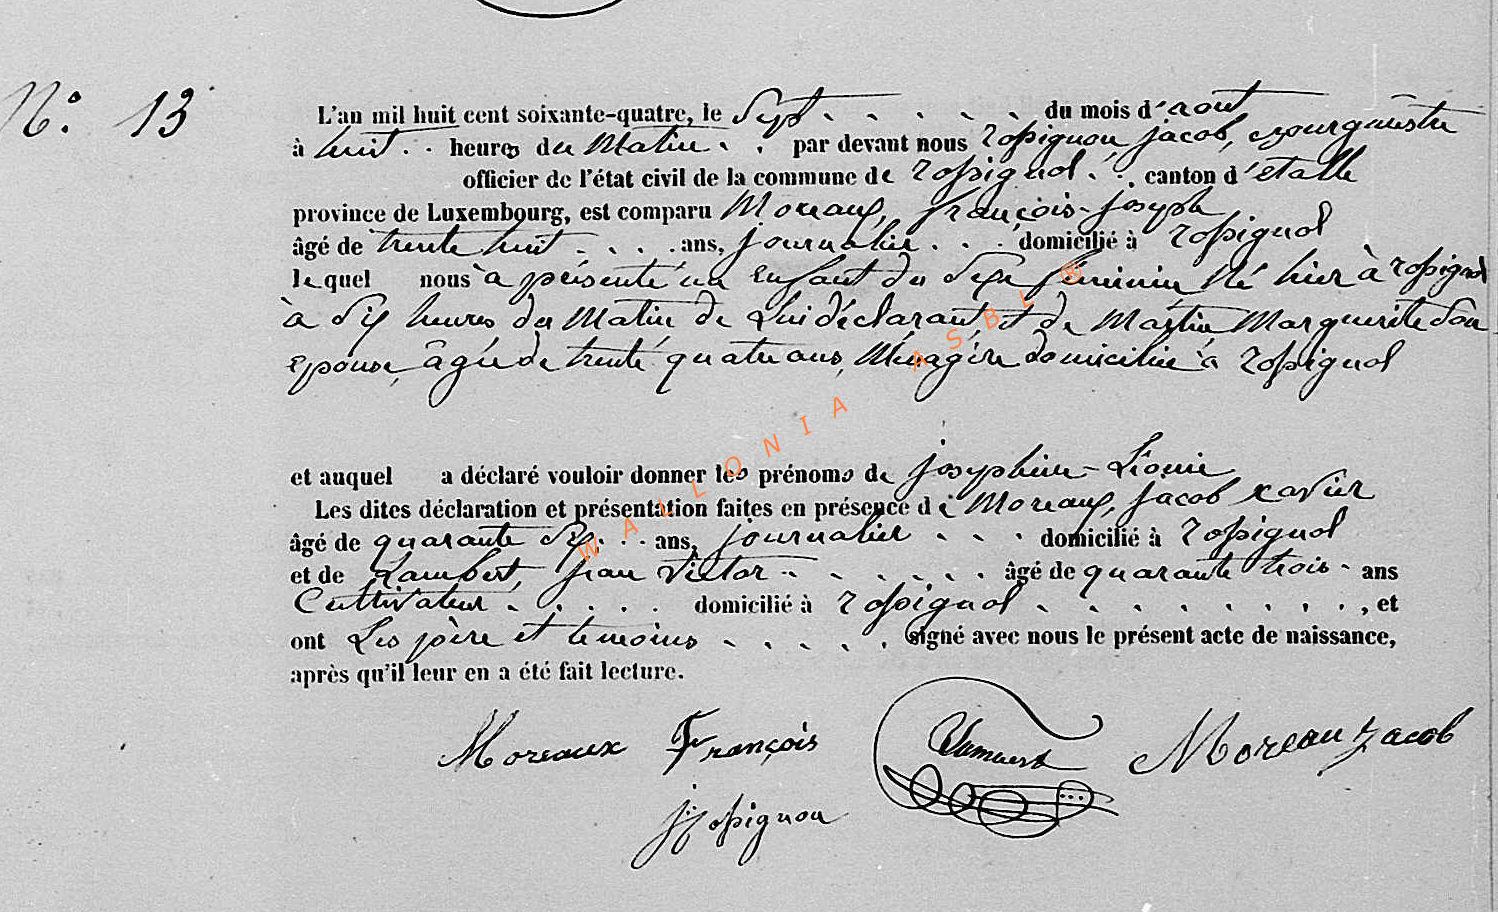 N° 13
L'an mil huit cent soixante-quatre, le Sept . . . . . du mois d'août
à huit . . heures du Matin . . par devant nous rossignon, jacob, Bourguestre
officier de l'état civil de la commune de rossignol . . canton d'étalle
province de Luxembourg, est comparu Moreaux, françois-joseph
âgé de trente huit . . . . ans, journalier . . . domicilié à rossignol
lequel nous a présenté un Enfant du Sexe féminin Né hier à rossignol
à Six heures du Matin de Lui déclarant, et de Martin Marguerite Son
épouse, âgée de trente quatre ans, Ménagère domiciliée à rossignol
et auquel a déclaré vouloir donner les prénoms de josephine-Léonie
Les dites déclaration et présentation faites en présence de Moreaux, jacob xavier
âgé de quarante Six . . . ans, journalier . . . domicilié à rossignol
et de Lambert, jean Victor . . . . . . . âgé de quarante trois - ans
Cultivateur . . . . . domicilié à rossignol . . . . . . . . . , et
ont Les père et temoins . . . . . signé avec nous le présent acte de naissance,
après qu'il leur en a été fait lecture.
Moreaux François Lambert Moreau Jacob
j: rossignon
WALLONIA ASBL ®